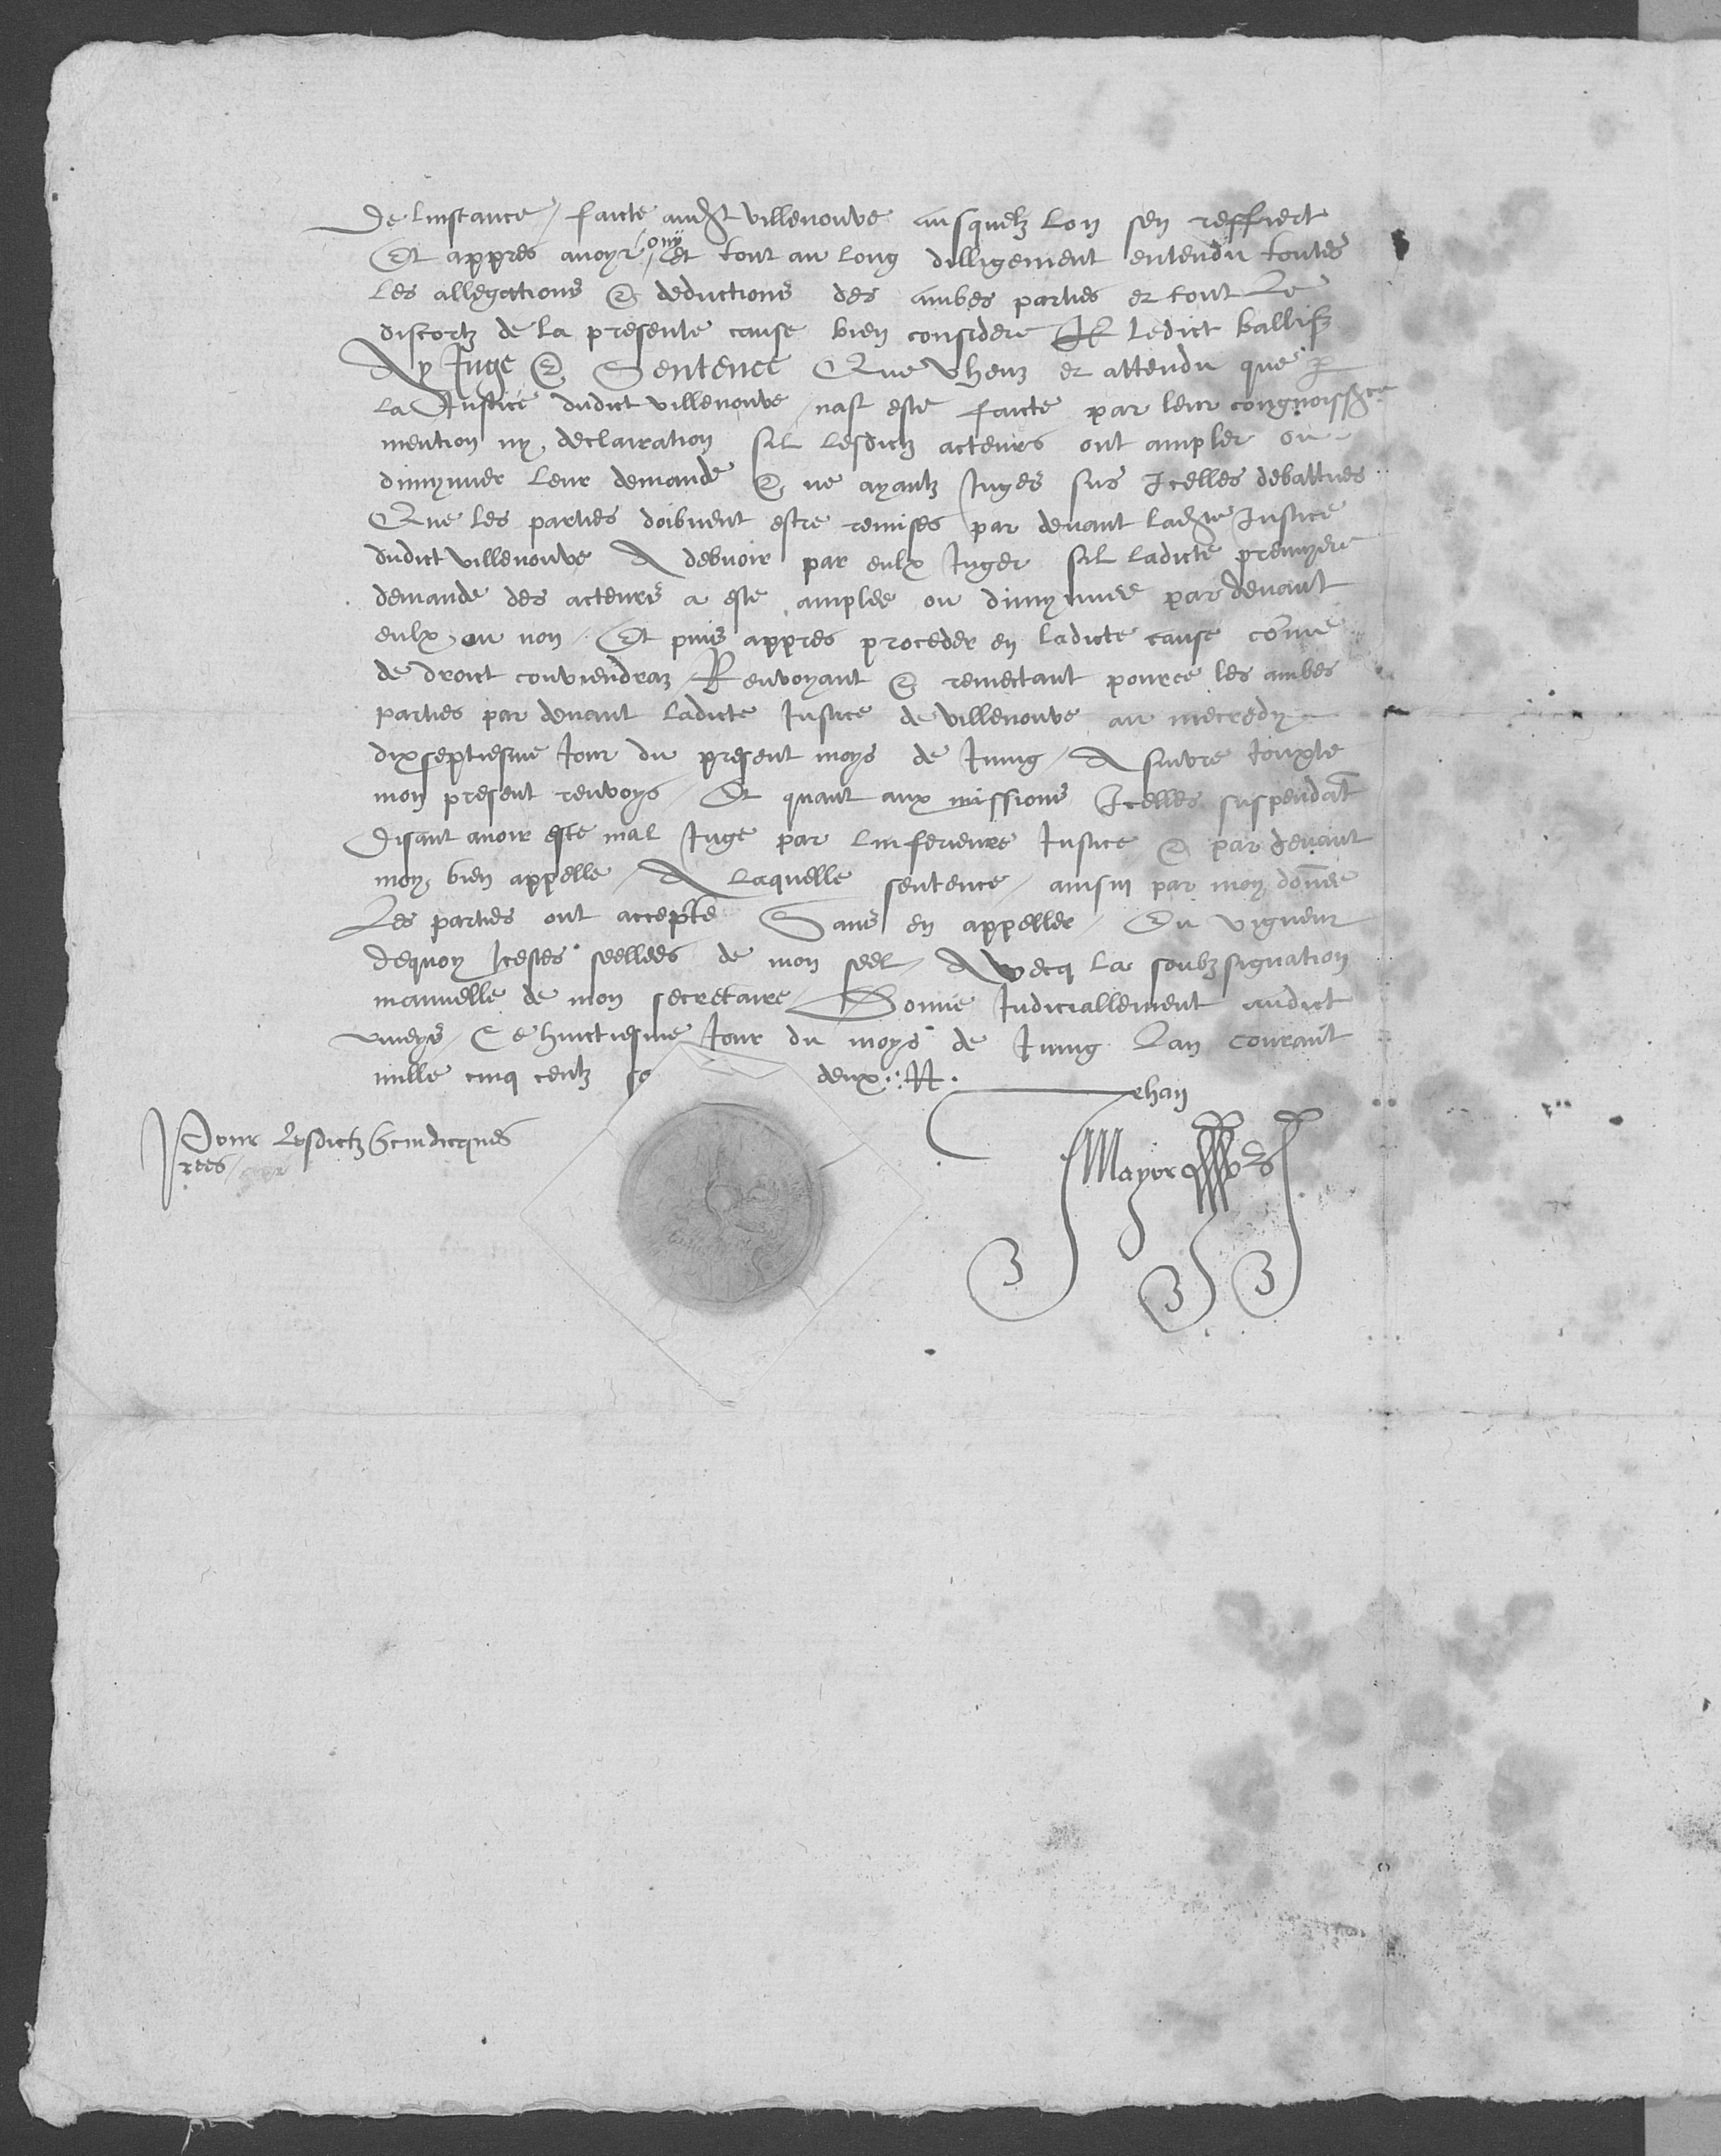 De linstance / faicte audict villenouve ausquelz lon sen reffiert
Et appres avoyr ouy et tout au long dilligement entendu toutes
les allegations & deductions des ambes parties et tout le
discortz de la presente cause bien considere Je ledict ballifz
Ay Juge & Sentence Que vheuz et attendu que par
la Justice dudict villenouve / nast este faicte par leur congnoissce
mention ny declairation sil lesdictz acteurs ont ampler ou
dimynuer leur demande & ne ayantz Juges sus Jcelles debattues
Que les parties doibvent estre remises par devant ladte Justice
dudict villenouve A debvoir par eulx Juger sil ladicte premyere
demande des acteurs a este amplee ou dimynuee par devant
eulx ou non / Et puis appres proceder en ladicte cause come
de droict conviendraz / Renvoyant & remectant pource les ambes
parties par devant ladicte Justice de villenouve au mecredy
dixseptiesme Jour du present moys de Jung / A suivre Jouxte
mon present renvoys / Et quant aux missions Jcelles suspendat
Disant avoir este mal Juge par linferieure Justice & par devant
moy bien appelle / A laquelle sentence / ainsin par moy donee
Les parties ont accepte Sans en appeller / En vigueur
dequoy Jcestes seellees de mon seel / Avecq la soubzsignation
manuelle de mon secretaire / Donne Judiciallement audict
viveys / Ce huictiesme Jour du moys de Jung Lan courant
mille cinq centz so deux
Jehan
Mayor
Pour lesdictz Scindicques
rees